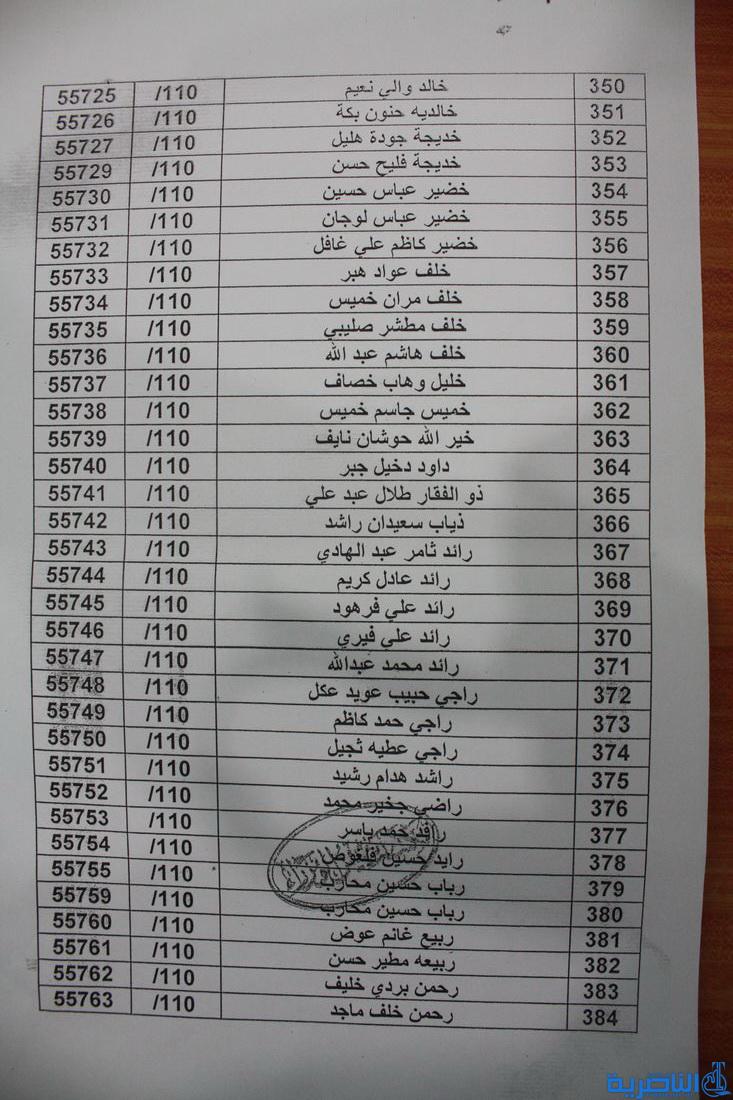 350 خالد والي نعيم 110/ 55725
351 خالديه حنون بكة 110/ 55726
352 خديجة جودة هليل 110/ 55727
353 خديجة فليح حسن 110/ 55729
354 خضير عباس حسين 110/ 55730
355 خضير عباس لوجان 110/ 55731
356 خضير كاظم علي غافل 110/ 55732
357 خلف عواد هبر 110/ 55733
358 خلف مران خميس 110/ 55734
359 خلف مطشر صليبي 110/ 55735
360 خلف هاشم عبد الله 110/ 55736
361 خليل وهاب خصاف 110/ 55737
362 خميس جاسم خميس 110/ 55738
363 خير الله حوشان نايف 110/ 55739
364 داود دخيل جبر 110/ 55740
365 ذو الفقار طلال عبد علي 110/ 55741
366 ذياب سعيدان راشد 110/ 55742
367 رائد ثامر عبد الهادي 110/ 55743
368 رائد عادل كريم 110/ 55744
369 رائد علي فرهود 110/ 55745
370 رائد علي فيري 110/ 55746
371 رائد محمد عبدالله 110/ 55747
372 راجي حبيب عويد عكل 110/ 55748
373 راجي حمد كاظم 110/ 55749
374 راجي عطيه ثجيل 110/ 55750
375 راشد هدام رشيد 110/ 55751
376 راضي جخير محمد 110/ 55752
377 رافد حمد ياسر 110/ 55753
378 رايد حسين 110/ 55754
379 رباب حسين محارب 110/ 55755
380 رباب حسين محارب 110/ 55759
381 ربيع غانم عوض 110/ 55760
382 ربيعه مطير حسن 110/ 55761
383 رحمن بردي خليف 110/ 55762
384 رحمن خلف ماجد 110/ 55763
الناصرية